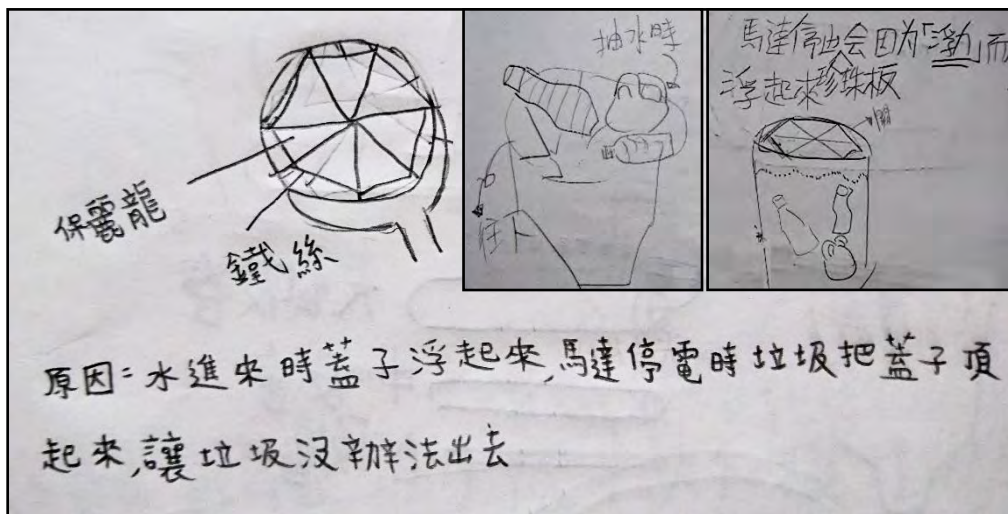 保麗龍
鐵絲
抽水時
往下
馬達停也会因为「浮力」而
浮起來珍珠板
原因=水進來時蓋子浮起來,馬達停電時垃圾把蓋子頂
起來,讓垃圾沒辦法出去